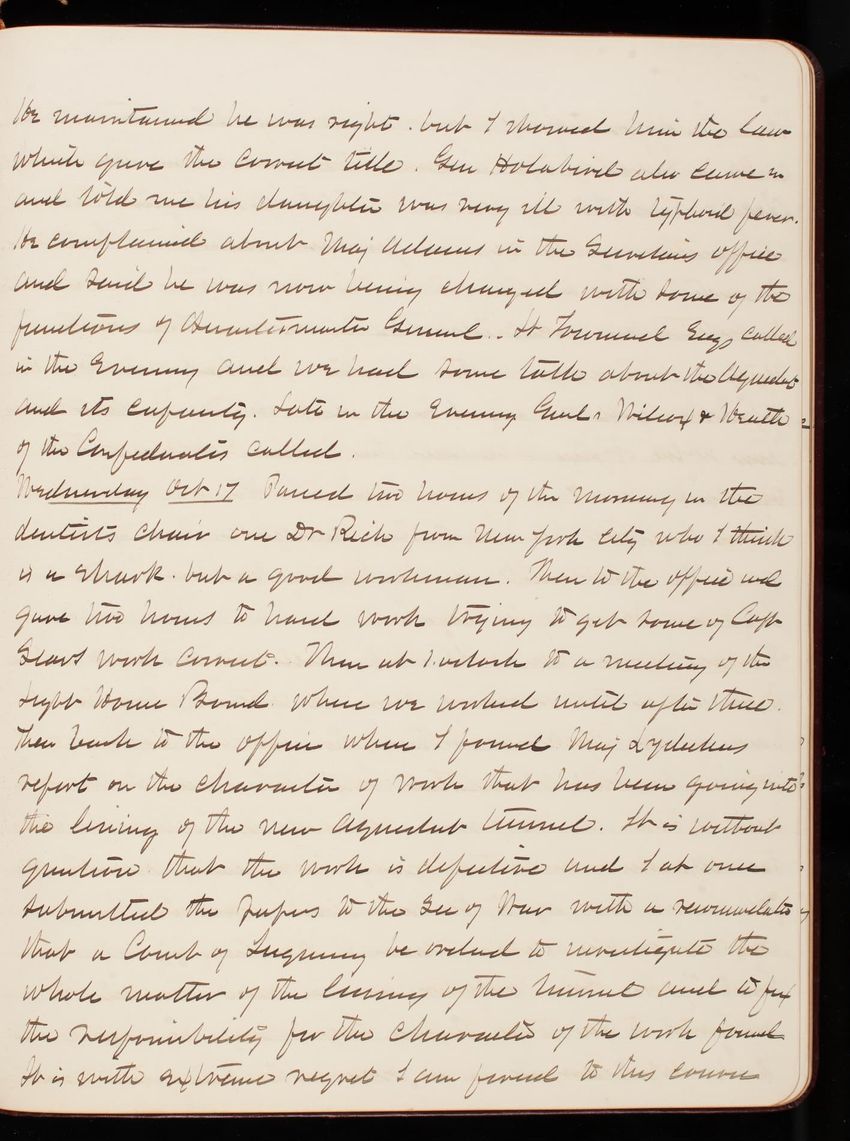 He maintained he was right. but I showed him the law
which gave the correct title. Gen Holabird also came in
and told me his daughter was very ill with typhoid fever.
He complained about Maj Adams in the Secretaries office
and said he was now being charged with some of the
functions of Quartermaster General.. Lt Townsend called
in the Evening and we had some talk about the Aqueduct
and its capacity. Late in the Evening Genls Wilcox & Heath
of the Confederates called.
Wednesday Oct 17 Passed two hours of the morning in the
dentists chair one Dr Rich from New York City who I think
is a shark. but a good workman. Then to the office and
gave two hours to hard work trying to get some of Capt
work correct. Then at 1. oclock to a meeting of the
Light House Board where we worked until after three.
Then back to the office where I found Maj Lydeckers
report on the character of work that has been going into
the lining of the new Aqueduct tunnel. It is without
question that the work is defective and I at once
submitted the papers to the Sec of War with a recommendation
that a Court of Inquiry be ordered to investigate the
whole matter of the lining of the tunnel and to fix
the responsibility for the character of the work found
It is with extreme regret I am forced to this course